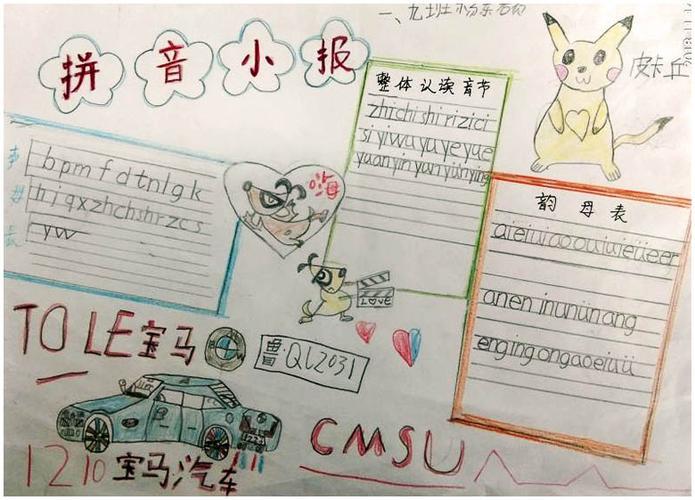 一、九班
2018.11.1
拼音小报
皮卡丘
整体认读音节
zhi chi shi ri zi ci
si yi wu yu ye yüe
yuan yin yun yün ying
声母表
b p m f d t n l g k
h j q x zh ch sh r z c s
y w
嗨
LOVE
韵母表
ai ei ui ao ou iu ie üe er
an en in un ün ang
eng ing ong a o e i u ü
TO LE宝马
鲁·QL2031
1210宝马汽车
CMSU